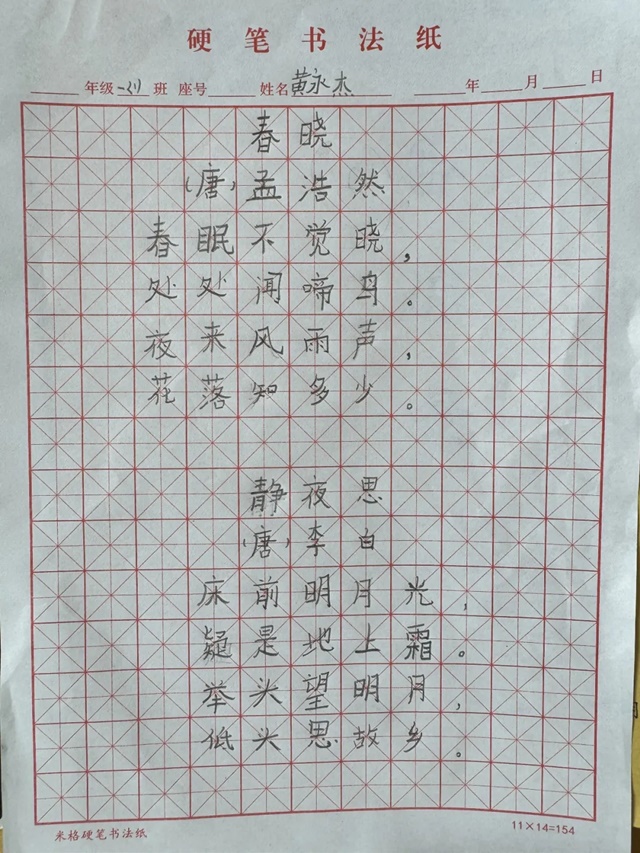 硬笔书法纸
年级 班 座号 姓名黄永杰 年 月 日
春晓
(唐)孟浩然
春眠不觉晓,
处处闻啼鸟。
夜来风雨声,
花落知多少。
静夜思
(唐)李白
床前明月光,
疑是地上霜。
举头望明月,
低头思故乡。
米格硬笔书法纸
11×14=154